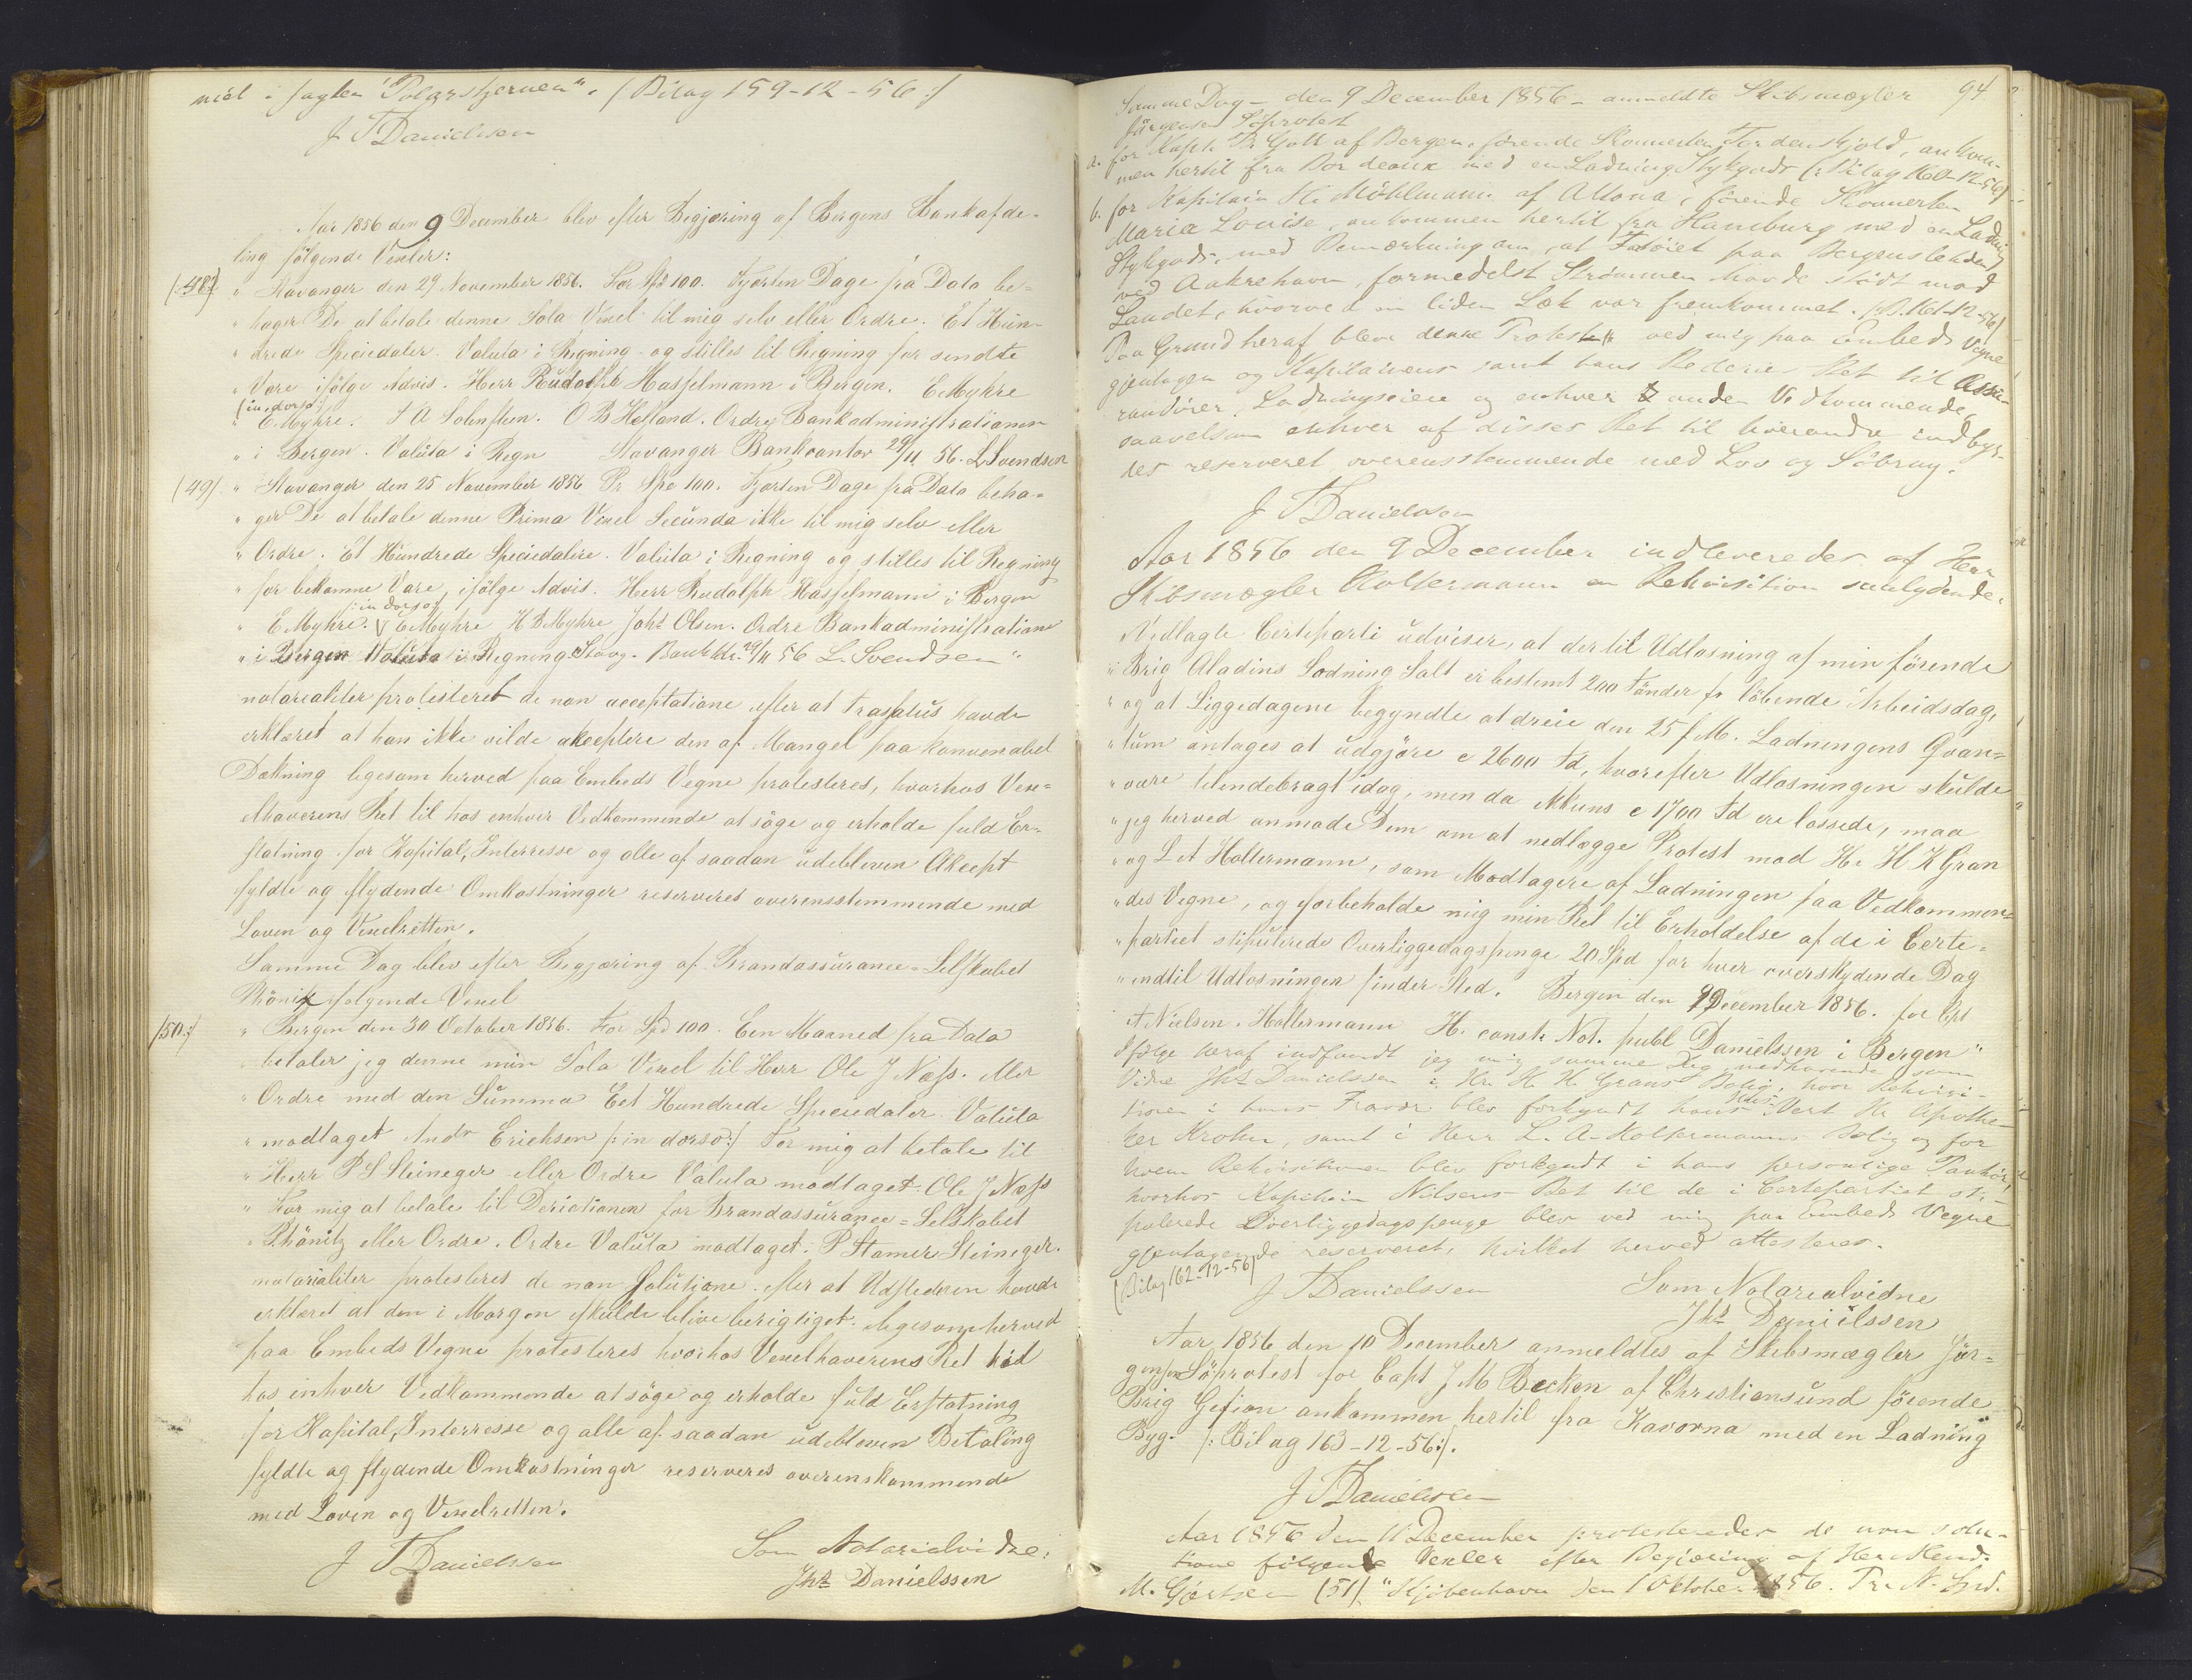 niel i Jagten "Polarstjernen". /Bilag 159-12-56:/
J T Danielssen
Aar 1856 den 9 December blev efter Begjæring af Bergens Bankafde-
ling følgende Vexler:
/:48:/ " Stavanger den 29 November 1856. For Spd 100. Fjorten Dage fra Dato be-
" hager De at betale denne Sola Vexel til mig selv eller Ordre. Et Hun-
" drede Speciedaler. Valuta i Regning og stilles til Regning for sendte
" Vare ifölge Advis. Herr Rudolph Hasselmann i Bergen. E Myhre
(in dorso:)
" E Myhre. T A Solensteen. O B Hefland. Ordre Bankadministrationen
" i Bergen. Valuta i Regn Stavanger Bankcontor 29/11 56. L Svendsen
/49/ " Stavanger den 25 November 1856 Pr Spd 100. Fjorten Dage fra Dato beha-
" ger De at betale denne Prima Vexel Secunda ikke til mig selv eller
" Ordre. Et Hundrede Speciedalere. Valuta i Regning og stilles til Regning
" for bekomne Vare, ifölge Advis. Herr Rudolph Hasselmann i Bergen
:in dorso:
" E Myhre. E Myhre H B Myhre Johs Olsen. Ordre Bankadministrationen
" i Bergen Valuta i Regning. Stavg. Bankkt. 29/11 56 L. Svendsen"
notarialiter protesteret de non acceptatione efter at Trassatus havde
erklæret at han ikke vilde akceptere den af Mangel paa konvenabel
Dækning ligesom herved paa Embeds Vegne protesteres, hvorhos Vex-
elhaverens Ret til hos enhver Vedkommende at söge og erholde fuld Er-
statning for Kapital, Interresse og alle af saadan udebleven Akcept
fyldte og flydende Omkostninger reserveres overensstemmende med
Loven og Vexelretten.
Samme Dag blev efter Begjæring af Brandassurance-Selskabet
Phönix følgende Vexel
/50:/ " Bergen den 30 October 1856. For Spd 100. Een Maaned fra Dato
" betaler jeg denne min Sola Vexel til Herr Ole J Næss. eller
" Ordre med den Summa Eet Hundrede Speciedaler. Valuta
" modtaget Andr Erichsen /:in dorso:/ For mig at betale til
" Herr P S Steineger eller Ordre Valuta modtaget. Ole J Næss
" For mig at betale til Derictionen for Brandassurance-Selskabet
" Phönitz eller Ordre. Ordre Valuta modtaget: P Stamer Steineger.
notarialiter protesteres de non Solutione. efter at Udstederen havde
erklæret at den i Morgen skulde blive berigtiget. ligesom herved
paa Embeds Vegne protesteres hvorhos Vexelhaverens Ret til
hos enhver Vedkommende at söge og erholde fuld Erstatning
for Kapital, Interresse og alle af saadan udebleven Betaling
fyldte og flydende Omkostninger reserveres overenskommende
med Loven og Vexelretten.
J T Danielssen Som Notarialvidne:
Jhs Danielssen
94
Samme Dag - den 9 December 1856 - anmeldte Skibsmægler
Jörgensen Söprotest
a. for Kapt. Gall af Bergen, förende Skonnerten Tordenskjold, ankom-
men hertil fra Bordeaux med en Ladning Stykgods (: Bilag 160-12-56)
b. for Kapitain H. Möhlmann af Altona, förende Skonnerten
Maria Louise, ankommen hertil fra Hamburg med en Ladning
Stykgods, med Bemærkning om, at Fartöiet paa Bergensleeden
ved Aakrehavn, formedelst Strömmen havde stödt mod
Landet, hvorved en liden Læk var fremkommet. (:B. 161-12-56)
Paa Grund heraf blev denne Protest ved mig paa Embeds Vegne
gjentagen og Kapitainens samt hans Rederies Ret til Assu-
randörer, Ladningseiere og enhver anden Vedkommende,
saavelsom enhver af disses Ret til hverandre indbyr-
des reserveret overensstemmende med Lov og Söbrug.
J T Danielssen
Aar 1856 den 9 December indleveredes af Herr
Skibsmægler Holtermann en Rekvisition saalydende:
" Vedlagte Certeparti udviser, at der til Udlosning af min førende
" Brig Aladins Ladning Salt er bestemt 200 Tønder pr løbende Arbeidsdag,
" og at Liggedagene begyndte at dreie den 25 f.M. Ladningens Qvan-
" tum antages at udgjöre c 2600 Td, hvorefter Udlosningen skulde
" være tilendebragt idag, men da ikkuns c 1700 Td ere lossede, maa
" jeg herved anmode Dem om at nedlægge Protest mod Hr H K Gran
" og L A Holtermann, som Modtagere af Ladningen paa Vedkommen-
" des Vegne, og forbeholde mig min Ret til Erholdelse af de i Certe-
" partiet stipulerede Overliggedagspenge 20 Spd for hver overskydende Dag
" indtil Udlosningen finder Sted. Bergen den 9 December 1856. for Cpt
A Nielsen. Holtermann H. const. Not. publ Danielssen i Bergen"
Ifølge heraf indfandt jeg mig samme Dag medhavende som
Vidne Jhs Danielssen i Hr. H. K. Grans Bolig, hvor Rekvisi-
tionen i hans Fravær blev forkyndt hans Vert Hr Apothe-
ker Krohn, samt i Herr L. A. Holtermanns Bolig og for
hvem Rekvisitionen blev forkyndt i hans personlige Paahör,
hvorhos Kapitain Nilsens Ret til de i Certepartiet sti-
pulerede Overliggedagspenge blev ved mig paa Embeds Vegne
gjentagende reserveret, hvilket herved attesteres.
(Bilag 162-12-56) J T Danielssen Som Notarialvidne
Jhs Danielssen
Aar 1856 den 10 December anmeldtes af Skibsmægler Jör-
gensen Söprotest for Capt J M Becken af Christiansund förende
Brig Gefion ankommen hertil fra Kavorna med en Ladning
Byg. /:Bilag 163-12-56:/.
J T Danielssen
Aar 1856 den 11 December protesteredes de non solu-
tione følgende Vexler efter Begjæring af Herr Mend.
M. Gjertsen (51). "Kjöbenhavn den 1 Oktober 1856. Pr. N. Spd.